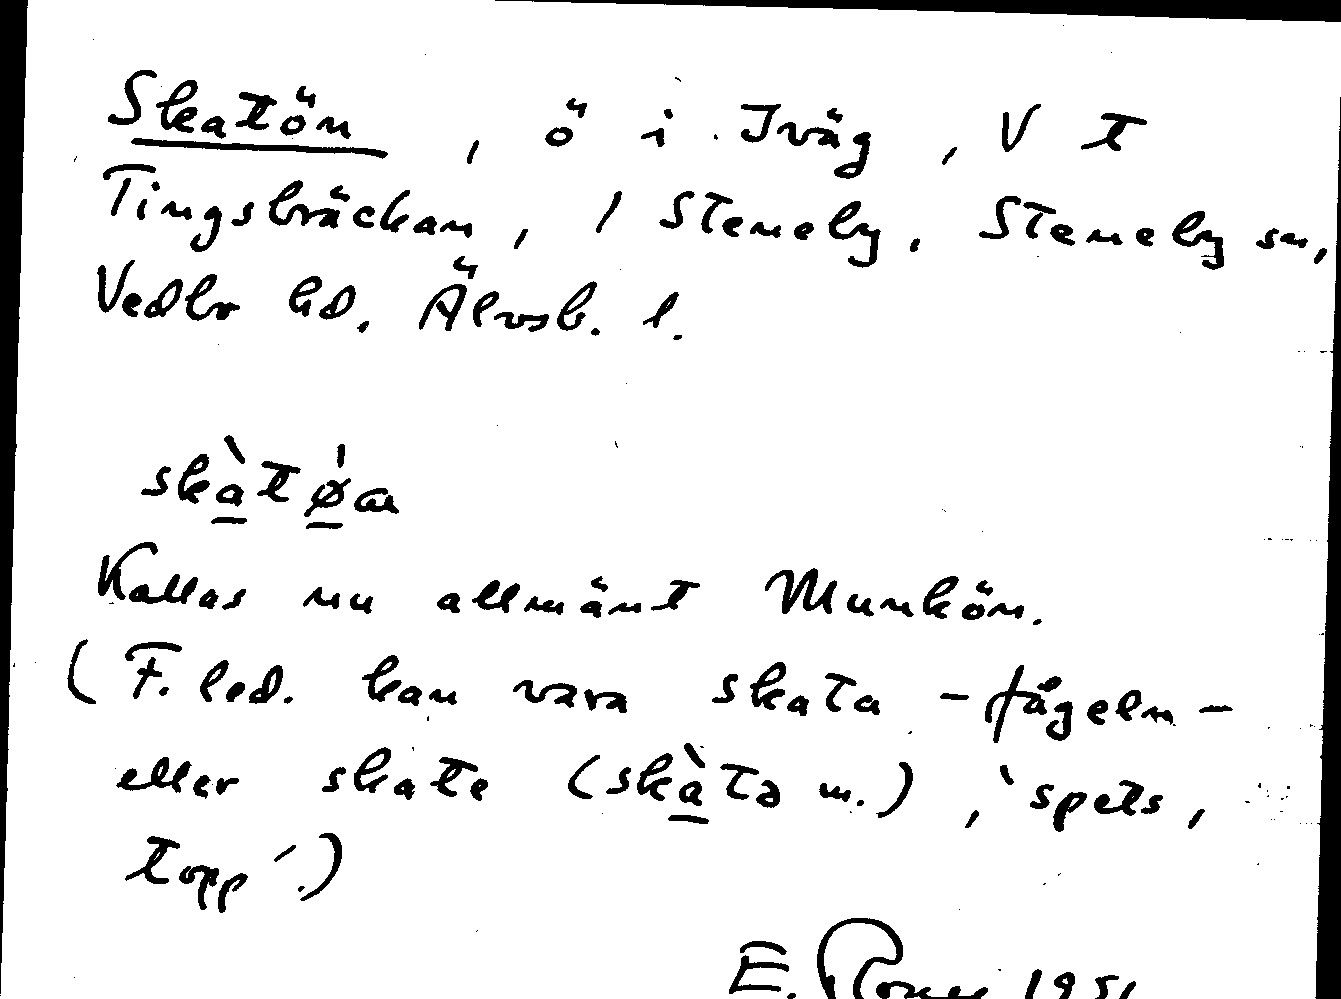 Skatön, ö i Iväg, V t
Tingsbräckan, 1 Steneby, Steneby sn,
Vedbo hd. Älvsb. l.
skàtǿa
Kallas nu allmänt Munkön.
(F. led. kan vara skata - fågeln -
eller skate (skàtə m.), 'spets,
topp'.)
E. 1951